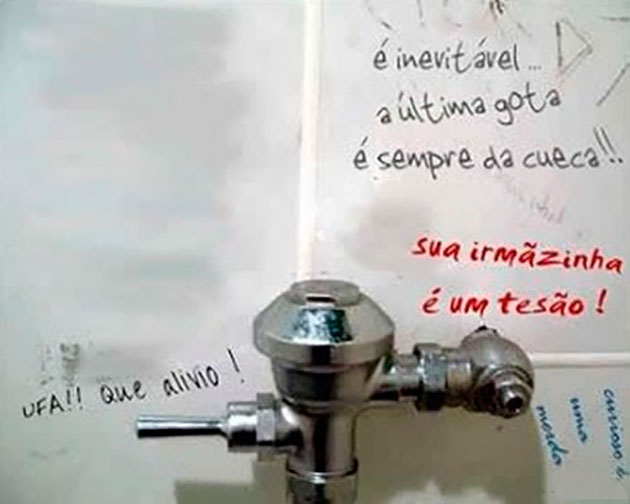 é inevitável...
a última gota
é sempre da cueca!!.
sua irmãzinha
é um tesão !
UFA!! que alivio !
curioso é
uma
merda